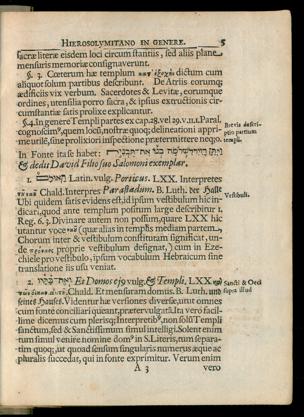 HIEROSOLYMITANO IN GENERE. 5
sacræ literæ eisdem loci circumstantiis, sed aliis plane
mensuris memoriæ consignaverunt.
§. 3. Cœterum hæc templum κατ' ἐξοχὴν dictum cum
aliquot solum partibus describunt. De Atriis eorumq;
ædificiis vix verbum. Sacerdotes & Levitæ, eorumque
ordines, utensilia porro sacra, & ipsius extructionis cir-
cumstantiæ satis prolixe explicantur.
§. 4. In genere Templi partes ex cap. 28. vel 29. v. 11. 1. Paral.
cognoscimꝰ, quem locū, nostræ quoq; delineationi appri-
me utilē, sine prolixiori inspectione prætermittere nequeo.
Brevis descri-
ptio partium
templi.
In Fonte ita se habet:
& dedit David Filio suo Salomoni exemplar.
1. Latin. vulg. Porticus. LXX. Interpretes
Chald. Interpres Parastadum. B. Luth. der Halle
Vestibuli.
Ubi quidem satis evidens est, id ipsum vestibulum hic in-
dicari, quod ante templum positum large describitur 1.
Reg. 6. 3. Divinare autem non possum, quare LXX hic
utantur voce (quæ alias in templis mediam partem,
Chorum inter & vestibulum constitutam significat, un-
de proprie vestibulum designat,) cum in Eze-
chiele pro vestibulo, ipsum vocabulum Hebraicum sine
translatione iis usu veniat.
2. Et Domos ejus vulg. & Templi, LXX. καὶ
Sancti & Oeci
supra illud
Chald. Et mensuram domus. B. Luth. und
seines Hauses. Videntur hæ versiones diversæ, ut ut omnes
cum fonte conciliari queant, præter vulgatā. Ita vero facil-
lime dicemus cum plerisq; Interpretibꝰ, non solū Templi
sanctum, sed & Sanctissimum simul intelligi. Solent enim
tum simul venire nomine domꝰ in S. Literis, tum separa-
tim quoq;, ut quod sensum singularis numerus æque ac
pluralis succedat, qui in fonte exprimitur. Verum enim
A 3 vero